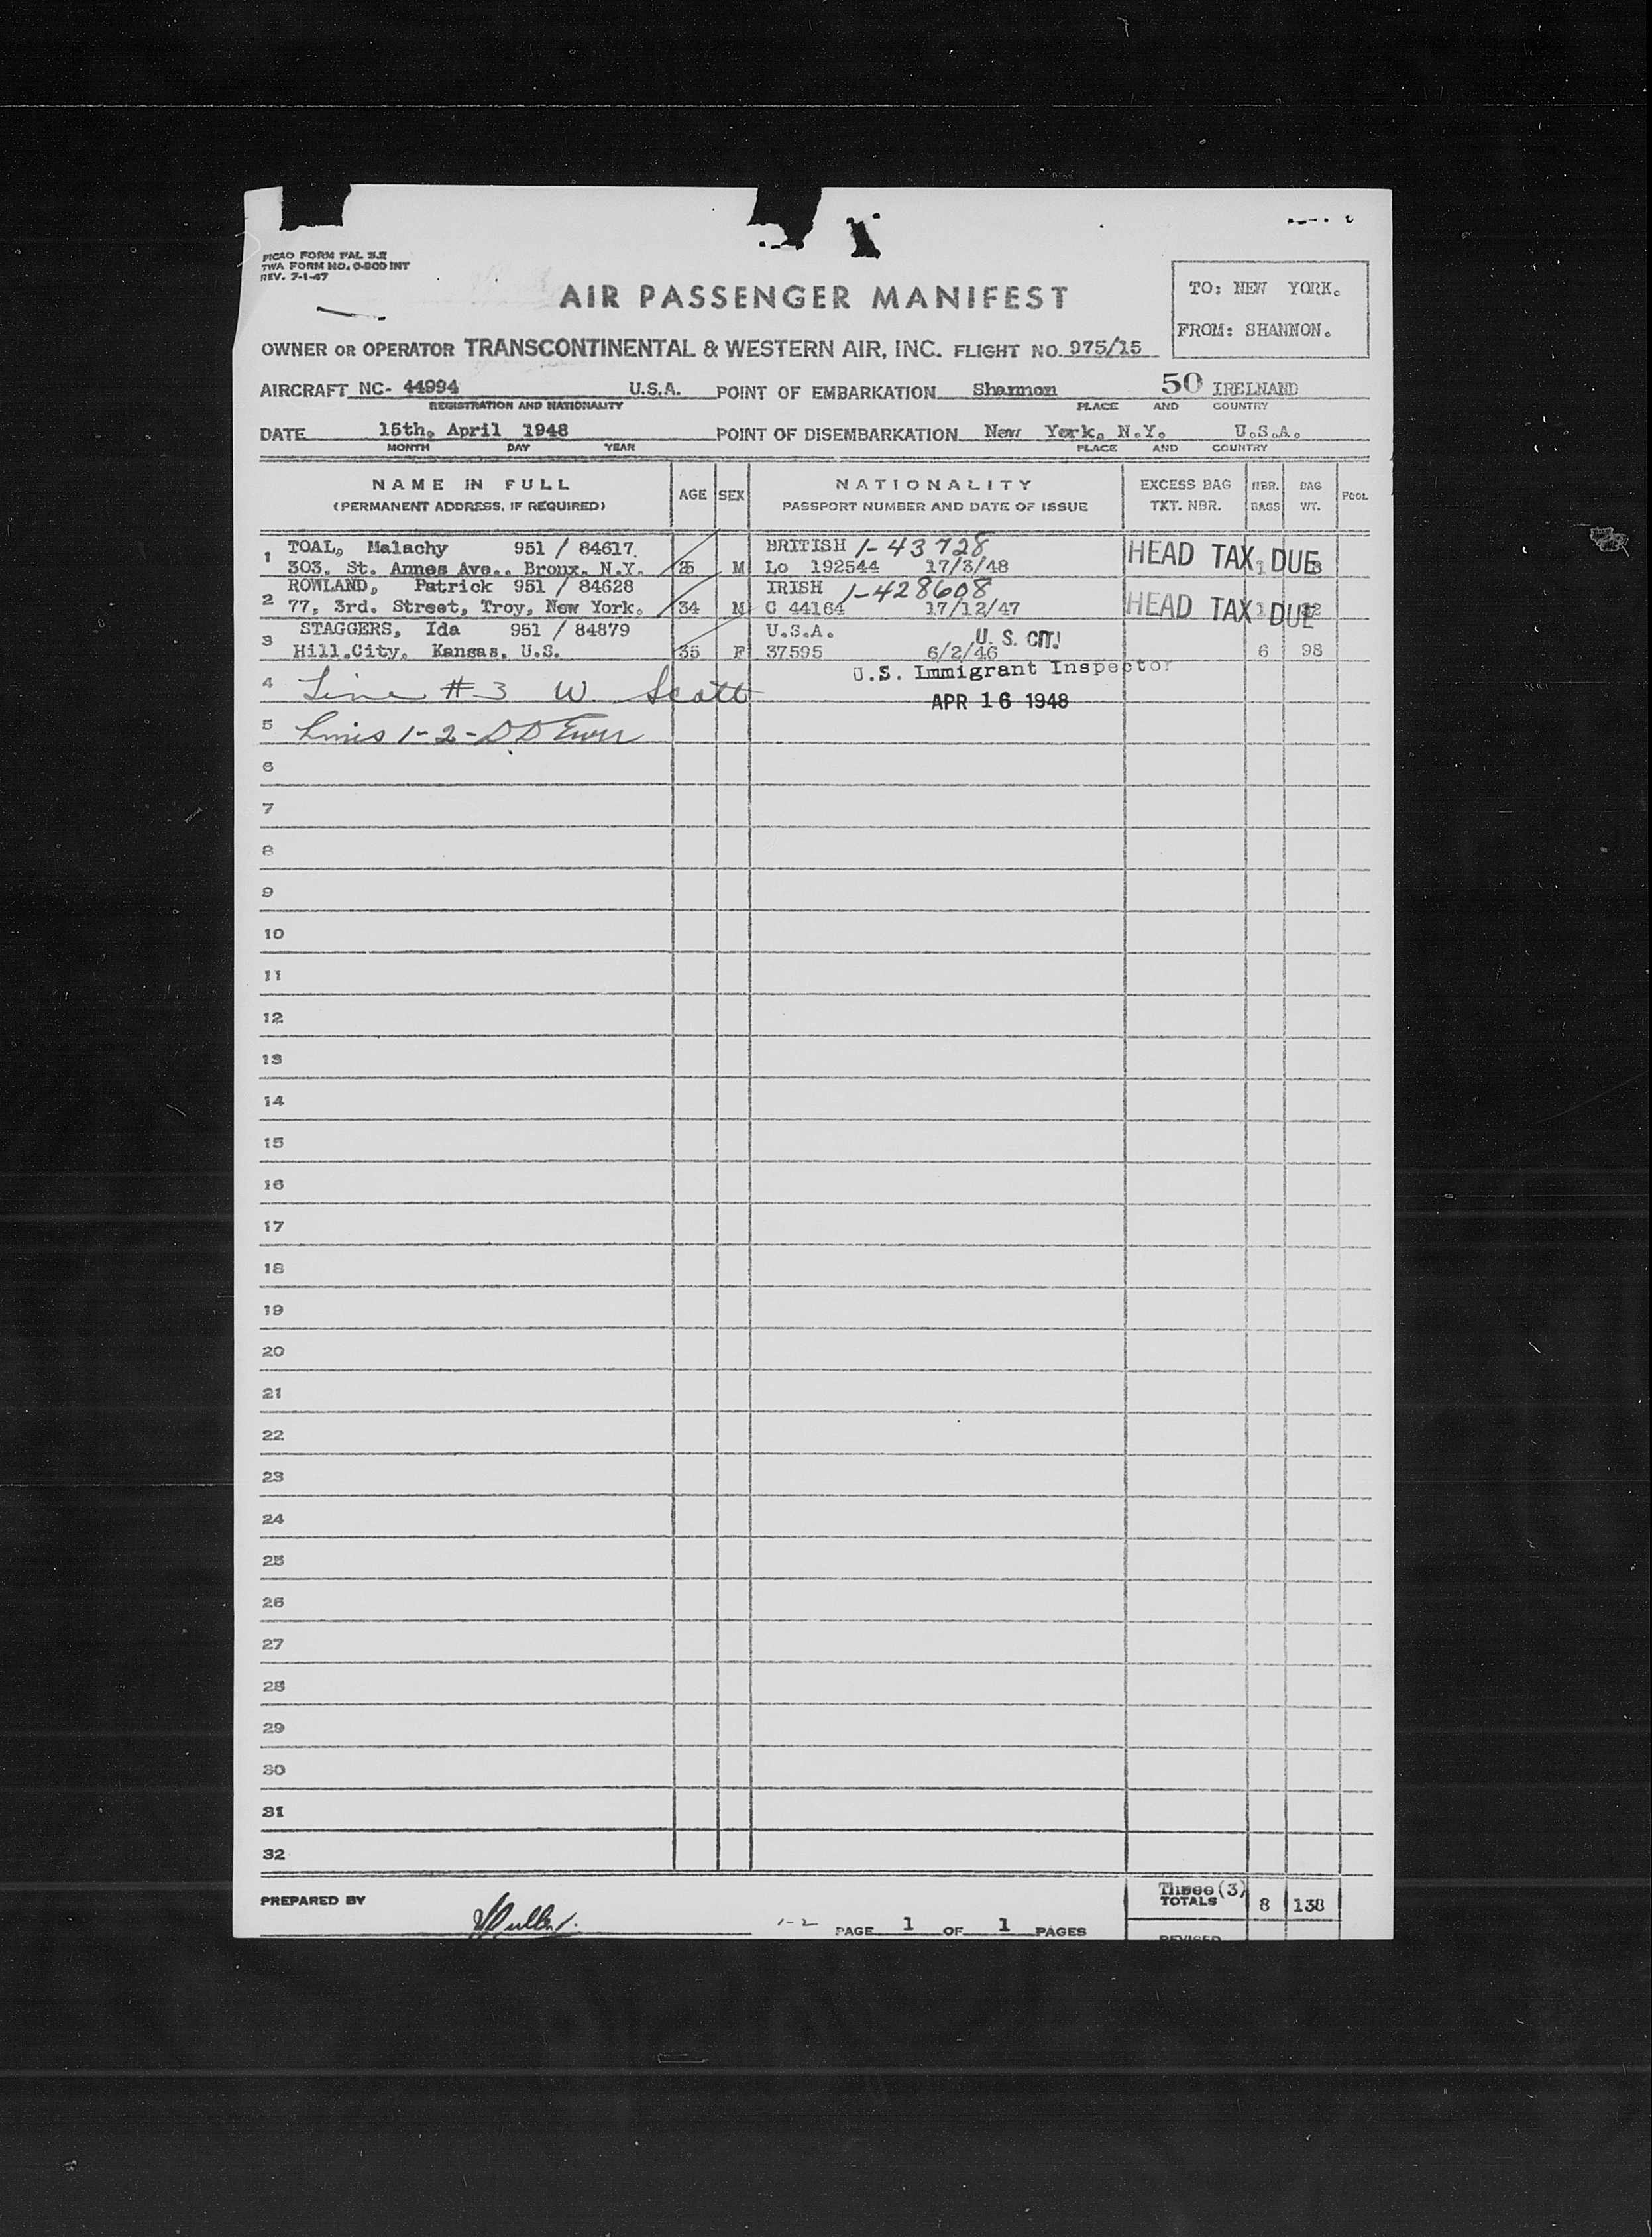 PICAO FORM FAL 3.2
TWA FORM NO. O-800 INT
REV. 7-1-47
AIR PASSENGER MANIFEST
TO: NEW YORK.
FROM: SHANNON.
OWNER OR OPERATOR TRANSCONTINENTAL & WESTERN AIR, INC. FLIGHT NO. 975/15
AIRCRAFT NC- 44994 U.S.A. POINT OF EMBARKATION Shannon 50 IRELNAND
REGISTRATION AND NATIONALITY PLACE AND COUNTRY
DATE 15th, April 1948 POINT OF DISEMBARKATION New York, N.Y. U.S.A.
MONTH DAY YEAR PLACE AND COUNTRY
NAME IN FULL AGE SEX NATIONALITY EXCESS BAG NBR. BAG POOL
(PERMANENT ADDRESS, IF REQUIRED) PASSPORT NUMBER AND DATE OF ISSUE TKT. NBR. BAGS WT.
1 TOAL, Malachy 951 / 84617. BRITISH 1-43728 HEAD TAX DUE
303, St. Annes Ave., Bronx, N.Y. 25 M Lo 192544 17/3/48
ROWLAND, Patrick 951 / 84628 IRISH 1-428608 HEAD TAX DUE
2 77, 3rd. Street, Troy, New York. 34 M C 44164 17/12/47
3 STAGGERS, Ida 951 / 84879 U.S.A. U. S. CIT!
Hill.City, Kansas, U.S. 35 F 37595 6/2/46 6 98
U.S. Immigrant Inspector
4 Line #3 W. Scott APR 16 1948
5 Lines 1-2-
6
7
8
9
10
11
12
13
14
15
16
17
18
19
20
21
22
23
24
25
26
27
28
29
30
31
32
Three (3)
PREPARED BY TOTALS 8 138
1-2 PAGE 1 OF 1 PAGES
REVISED